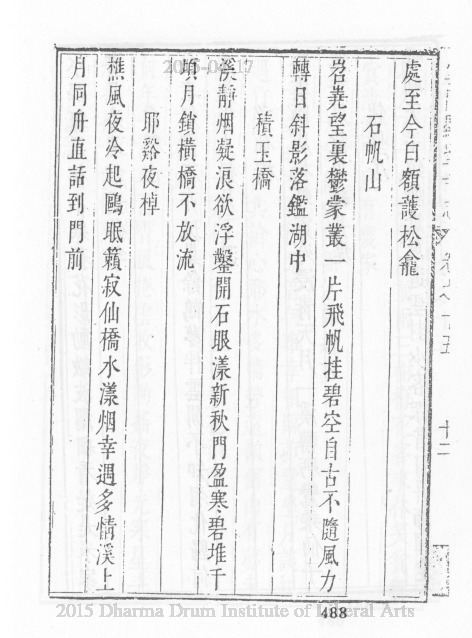 處至今白額護松龕
石帆山
岧嶤望裏鬱蒙叢一片飛帆挂碧空自古不隨風力
轉日斜影落鑑湖中
積玉橋
溪靜烟凝浪欲浮鑿開石眼漾新秋門盈寒碧堆千
頃月鎖橫橋不放流
耶谿夜棹
樵風夜冷起鷗眠籟寂仙橋水漾烟幸遇多情溪上
月同舟直話到門前
十二
2015 Dharma Drum Institute of Liberal Arts
488